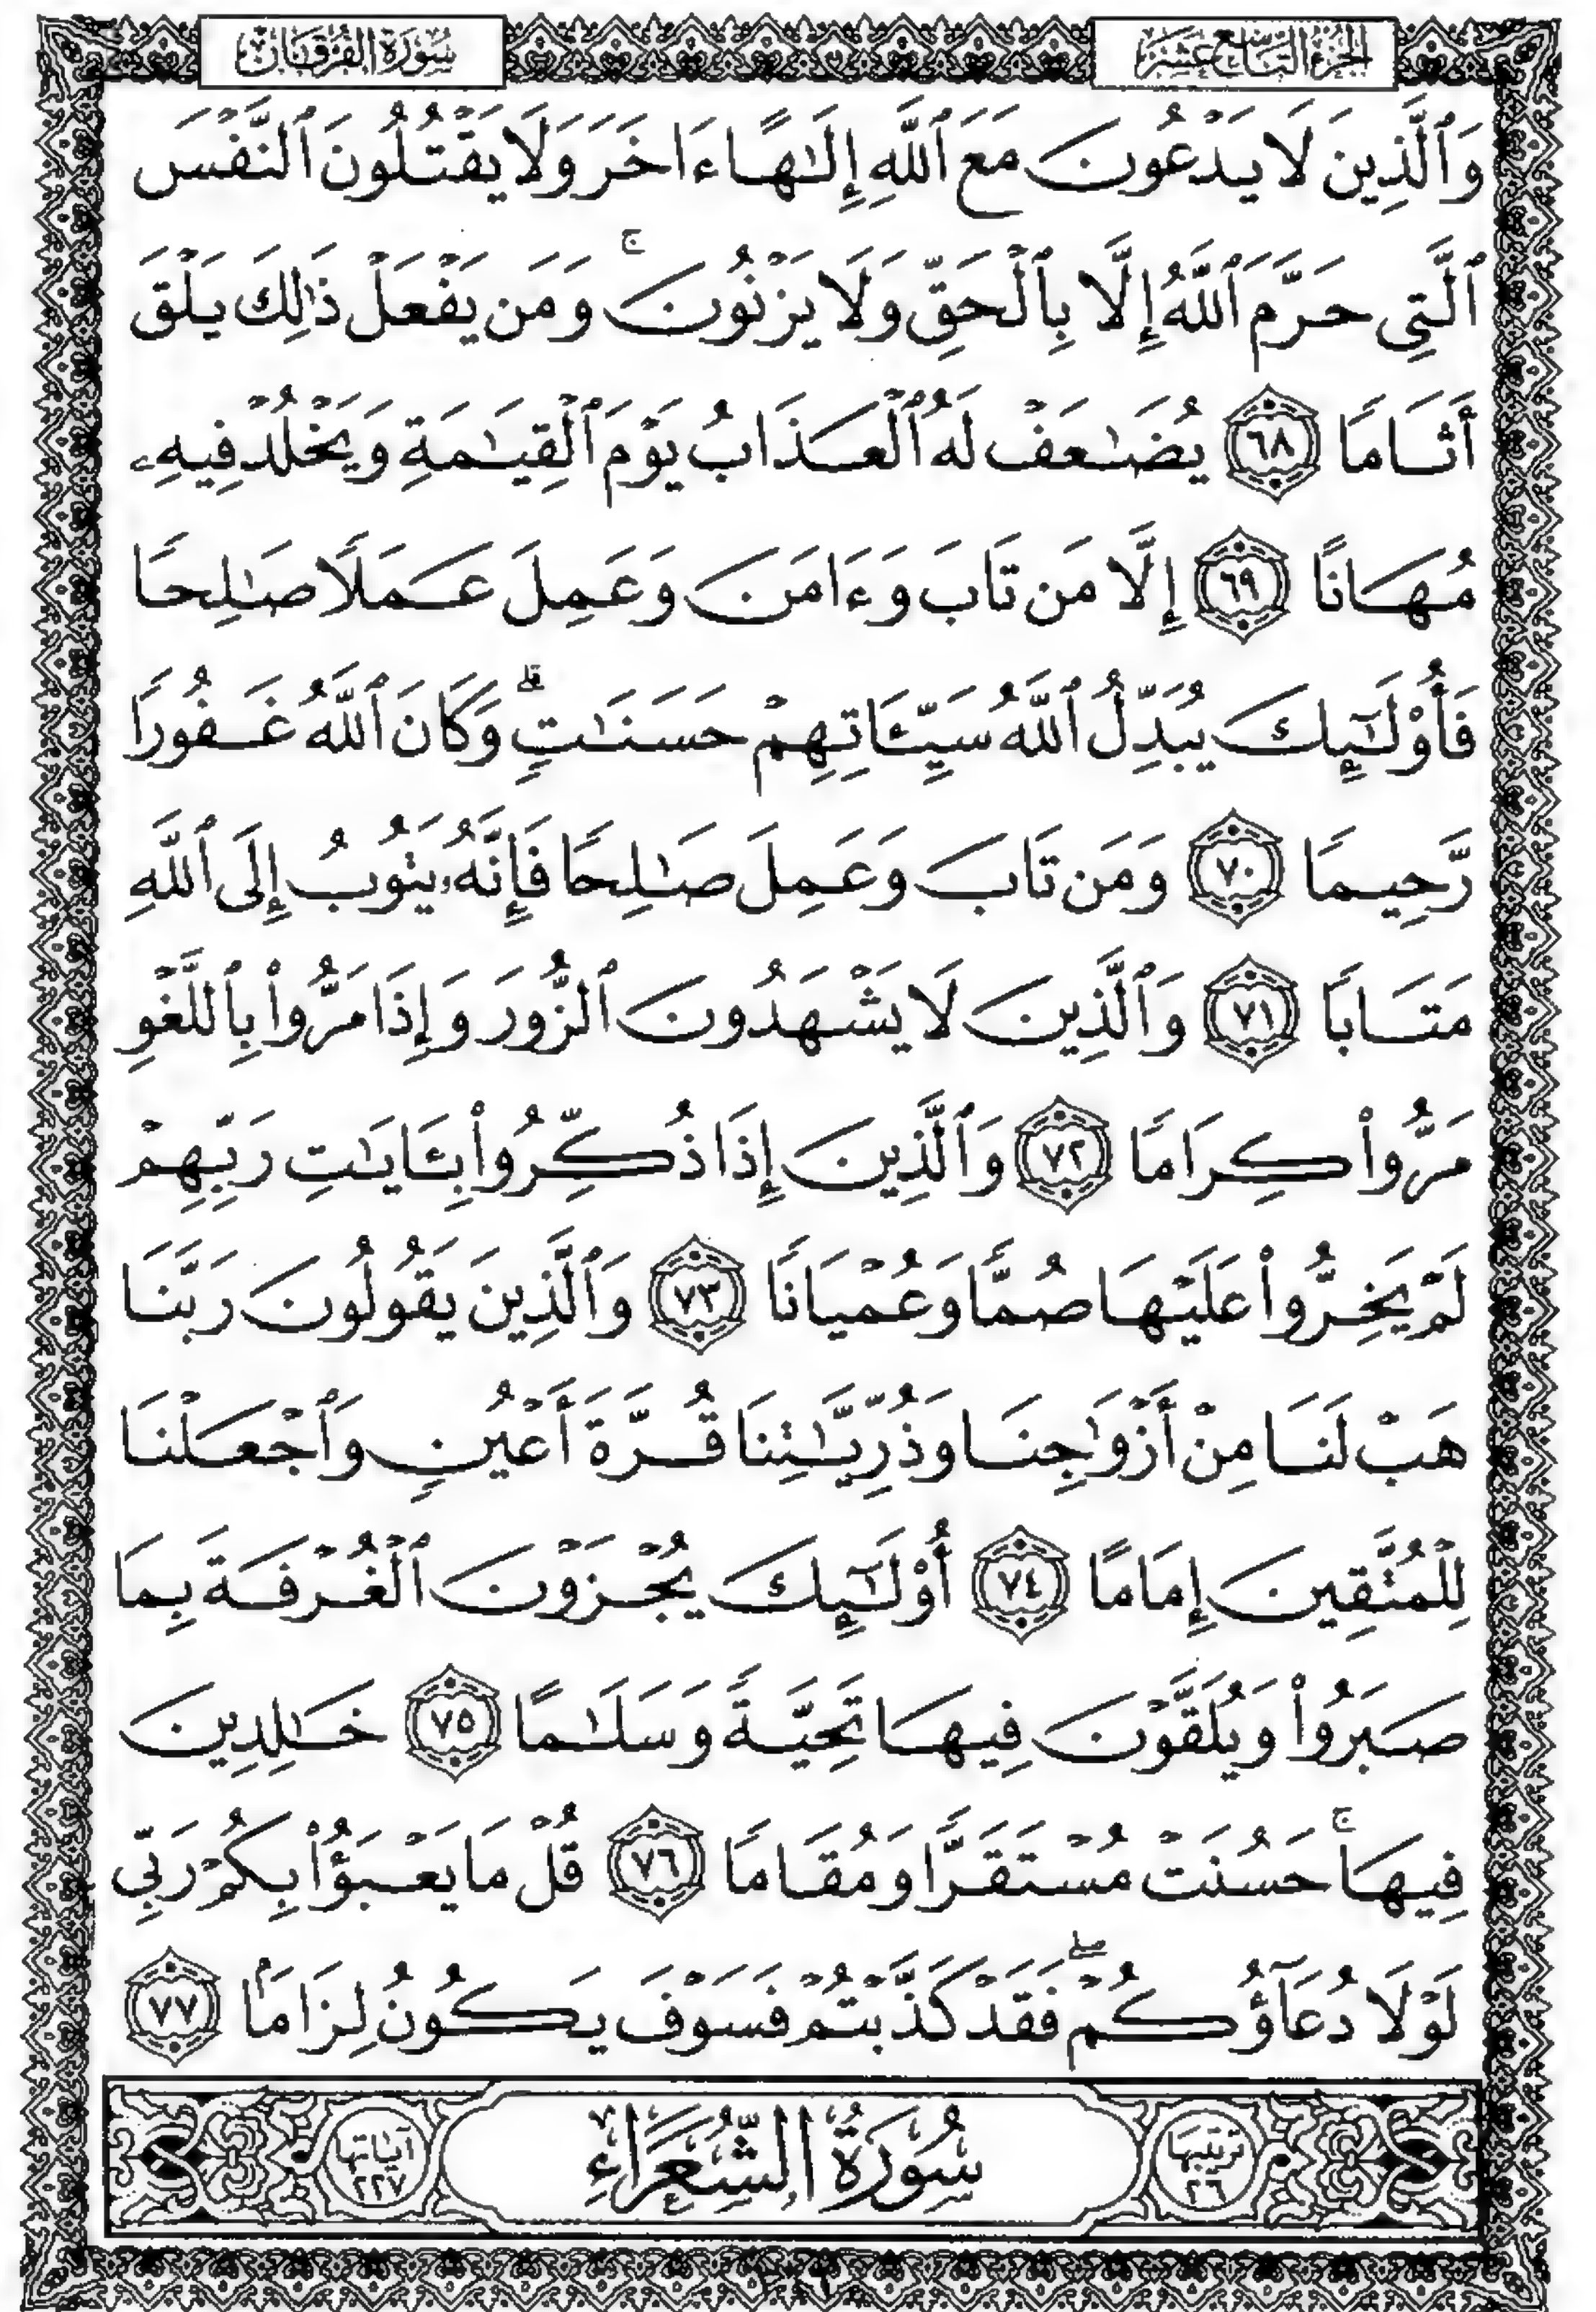 الجزء التاسع عشر
سورة الفرقان
وَٱلَّذِينَ لَا يَدْعُونَ مَعَ ٱللَّهِ إِلَـٰهًا ءَاخَرَ وَلَا يَقْتُلُونَ ٱلنَّفْسَ
ٱلَّتِى حَرَّمَ ٱللَّهُ إِلَّا بِٱلْحَقِّ وَلَا يَزْنُونَ ۚ وَمَن يَفْعَلْ ذَٰلِكَ يَلْقَ
أَثَامًا ٦٨ يُضَـٰعَفْ لَهُ ٱلْعَذَابُ يَوْمَ ٱلْقِيَـٰمَةِ وَيَخْلُدْ فِيهِۦ
مُهَانًا ٦٩ إِلَّا مَن تَابَ وَءَامَنَ وَعَمِلَ عَمَلًا صَـٰلِحًا
فَأُو۟لَـٰٓئِكَ يُبَدِّلُ ٱللَّهُ سَيِّـَٔاتِهِمْ حَسَنَـٰتٍ ۗ وَكَانَ ٱللَّهُ غَفُورًا
رَّحِيمًا ٧٠ وَمَن تَابَ وَعَمِلَ صَـٰلِحًا فَإِنَّهُۥ يَتُوبُ إِلَى ٱللَّهِ
مَتَابًا ٧١ وَٱلَّذِينَ لَا يَشْهَدُونَ ٱلزُّورَ وَإِذَا مَرُّوا۟ بِٱللَّغْوِ
مَرُّوا۟ كِرَامًا ٧٢ وَٱلَّذِينَ إِذَا ذُكِّرُوا۟ بِـَٔايَـٰتِ رَبِّهِمْ
لَمْ يَخِرُّوا۟ عَلَيْهَا صُمًّا وَعُمْيَانًا ٧٣ وَٱلَّذِينَ يَقُولُونَ رَبَّنَا
هَبْ لَنَا مِنْ أَزْوَٰجِنَا وَذُرِّيَّـٰتِنَا قُرَّةَ أَعْيُنٍ وَٱجْعَلْنَا
لِلْمُتَّقِينَ إِمَامًا ٧٤ أُو۟لَـٰٓئِكَ يُجْزَوْنَ ٱلْغُرْفَةَ بِمَا
صَبَرُوا۟ وَيُلَقَّوْنَ فِيهَا تَحِيَّةً وَسَلَـٰمًا ٧٥ خَـٰلِدِينَ
فِيهَا ۚ حَسُنَتْ مُسْتَقَرًّا وَمُقَامًا ٧٦ قُلْ مَا يَعْبَؤُا۟ بِكُمْ رَبِّى
لَوْلَا دُعَآؤُكُمْ ۖ فَقَدْ كَذَّبْتُمْ فَسَوْفَ يَكُونُ لِزَامًۢا ٧٧
ترتيبها ٢٦
سُورَةُ الشُّعَرَاءِ
آياتها ٢٢٧